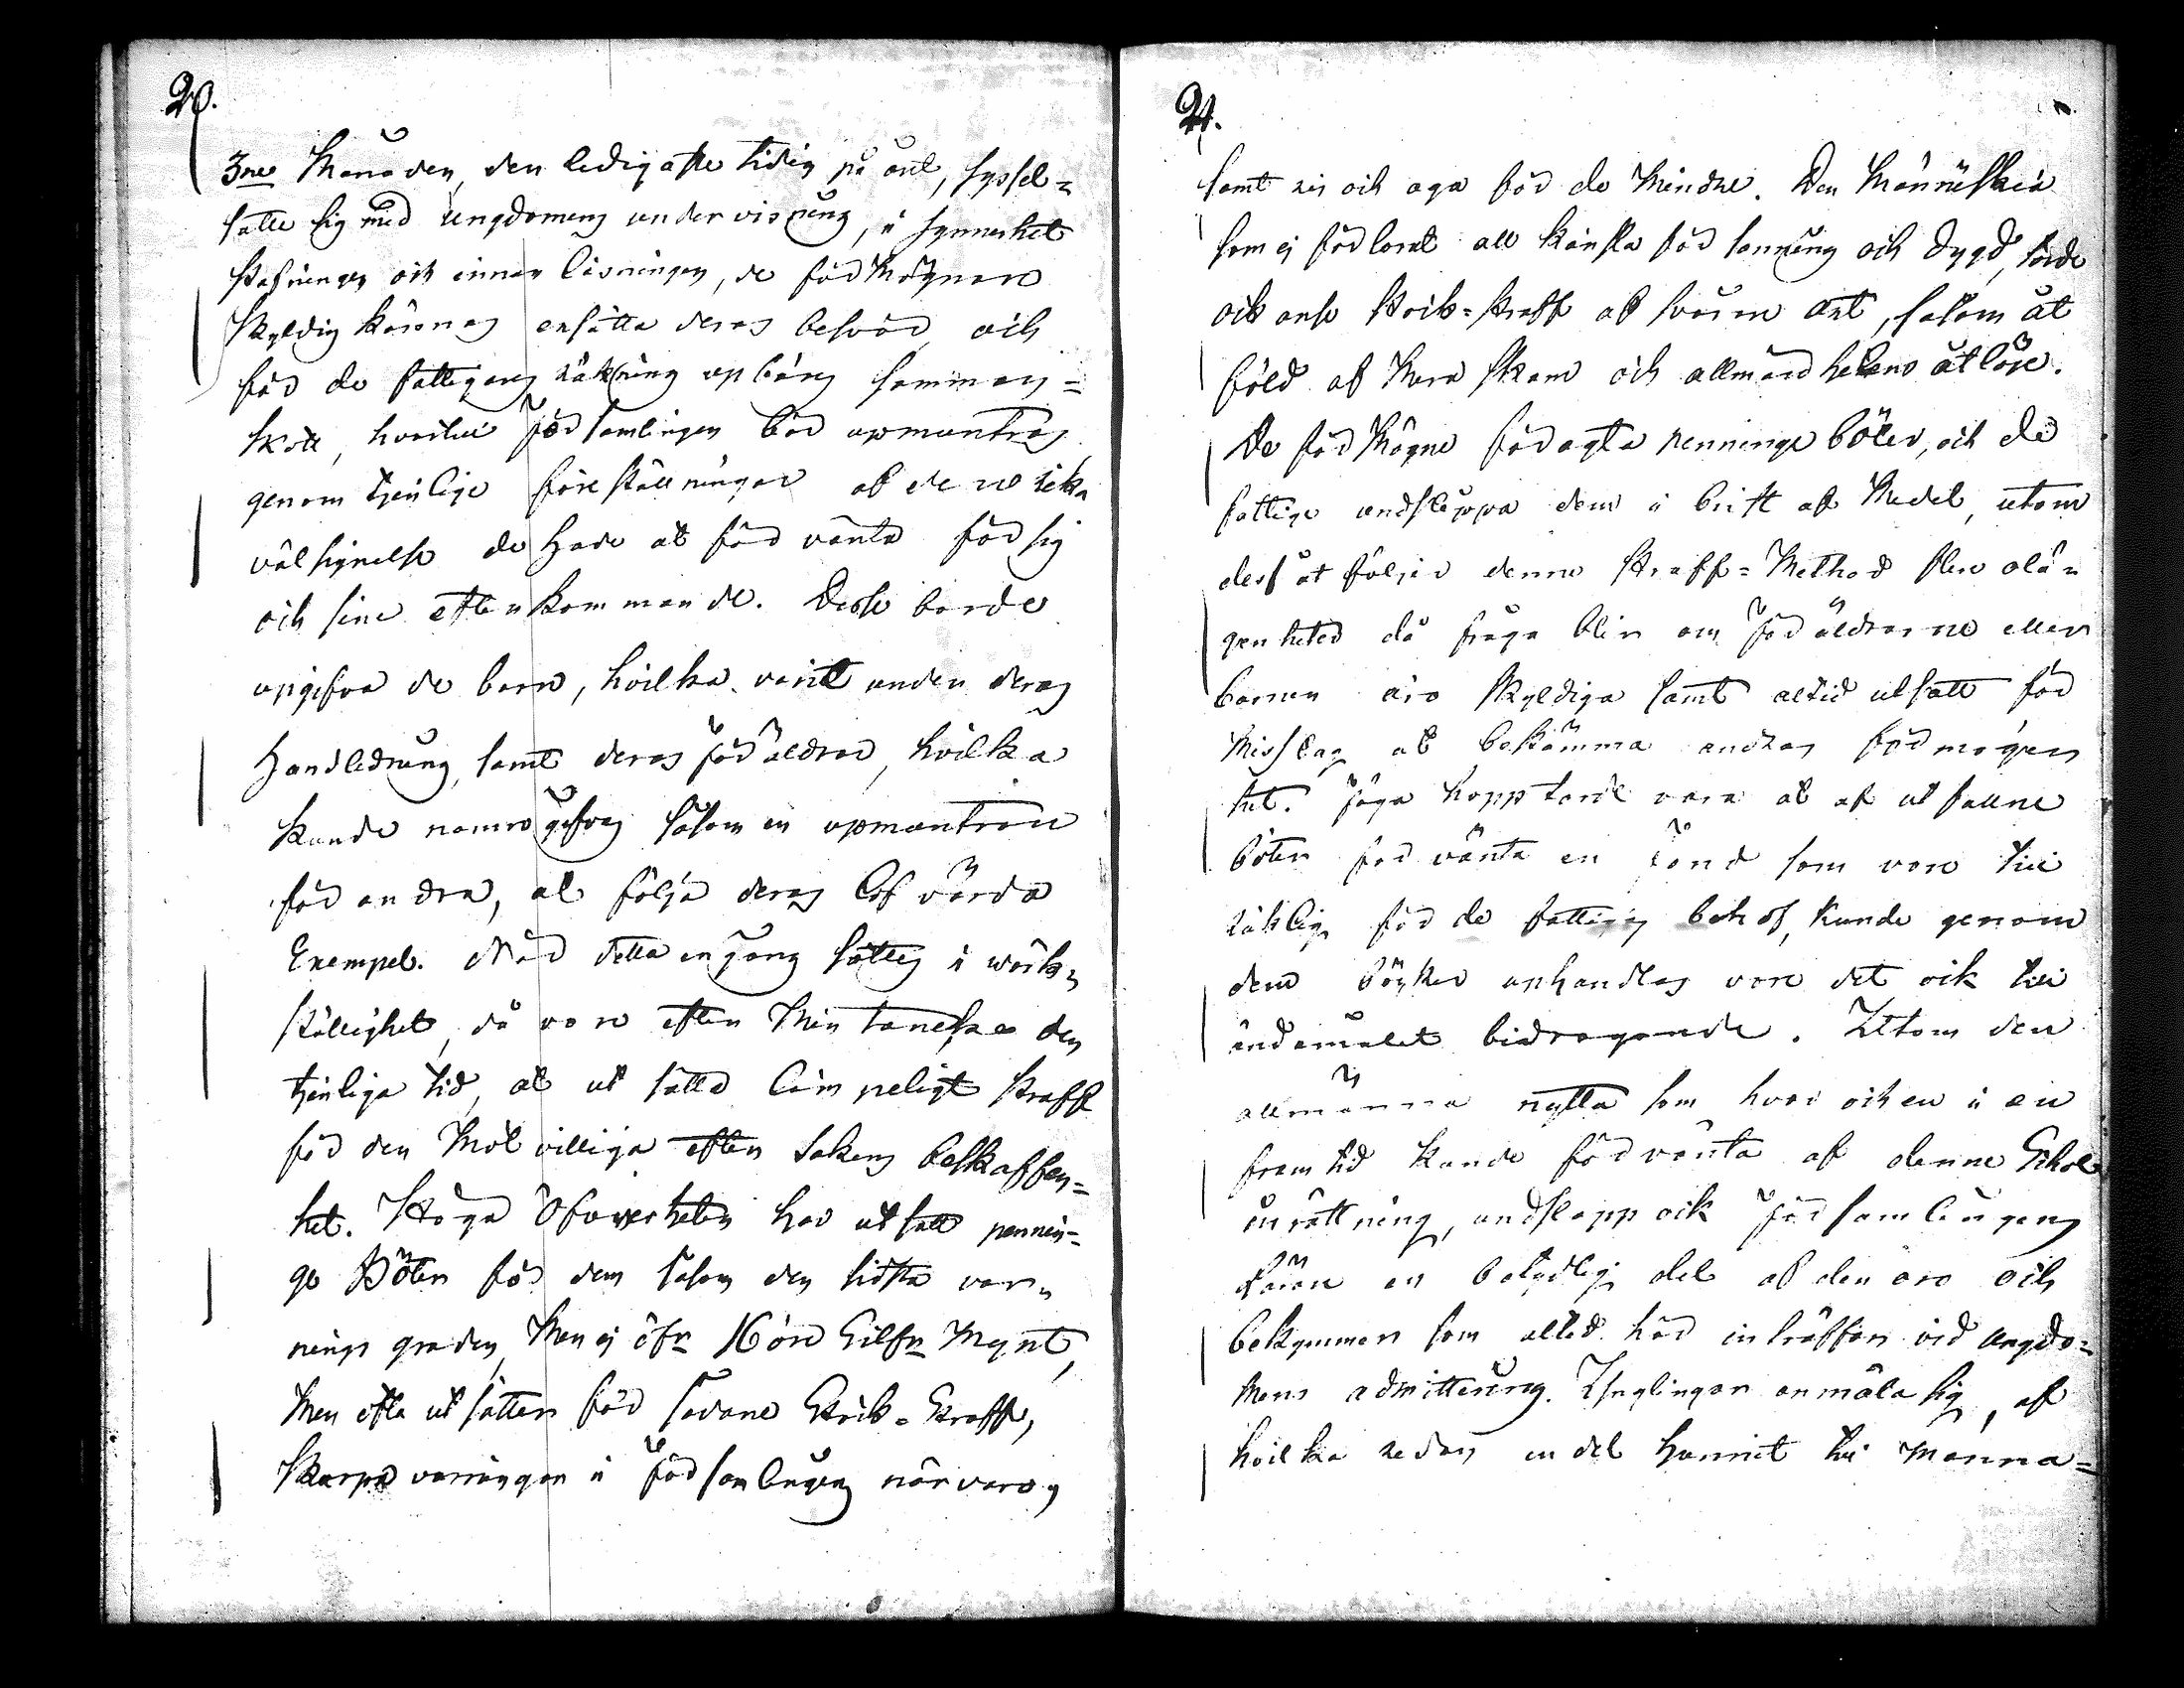 20.
3ne Månaden, den ledigaste tiden på året, syssel=
satte sig med ungdomens undervisning, i synnerhet
stafningen och innan läsningen, de förmögnare
skyldig kännas ersätta deras besvär, och
för de fattigares räkning upbäres samman=
skott, hvartil Församlingen bör upmuntras
genom tjenlige föreställningar af de no rika
välsignelse de hade at förvänta för sig
och sine efterkommande. Desse borde
upgifva de barn, hvilka varit under deras
Handledning, samt deras föräldrar, hvilka
kunde namngifvas såsom en upmuntran
för andra, at följa deras lofvärda
Exempel. När detta en gång sättes i wärk=
ställighet, då vore efter min tancka den
tjenliga tid, at utsätta lämpeligt straff
för den motvilliga efter sakens beskaffen=
het. Höga Öfverheten har utsatt pennin=
ge Böter för dem såsom den sidsta var=
nings graden, Men ej öfr 16 öre Silfr Mynt,
Men ofta utsätter för sådane Stock-Straff,
skarpa varningar i Församlingens närvaro,
21.
samt ris och aga för de Mindre. Den Människia
som ej förlorat all känsla för sanning och dygd, torde
ock anse stock=straff af svårare art, såsom åt
följd af mera skam och allmänhetens åtlöje.
De förmögne föragta penninge böter, och de
fattige undslippa dem i brist af Medel, utom
dess åtföljer denne straff=Method flere olä=
genheter då fråga blir om föräldrarne eller
barnen äro skyldiga samt altid utsatt för
Misstag at bekomma andras förmögen
het. Föga hopp torde vara at af utfallne
böter förvänta en fond som vore til
räklig för de fattigas behof, kunde genom
dem böcker uphandlas vore det ock til
ändamålet bidragande. Utom den
allmänna nytta som hvar och en i en
framtid kunde förvänta af denne Schole
inrättning, undslapp ock Församlingens
lärare en betydlig del af den oro och
bekymmer som altid här inträffar vid ungdo=
mens admittering. Ynglingar anmäla sig, af
hvilka redan en del hunnit til manna=